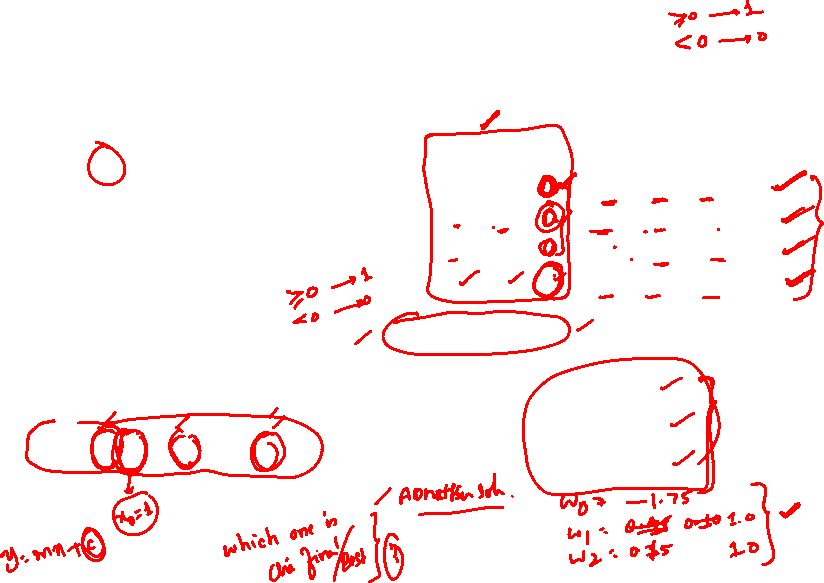 ≥0 → 1
<0 → 0
≥0 → 1
<0 → 0
x₀=1
y=mx+c
which one is
the final/Best
?
Another soln.
w₀ = -1.75
w₁ = 0.10 1.0
w₂ = 0.75 1.0